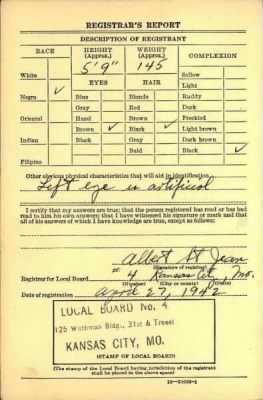 REGISTRAR'S REPORT
DESCRIPTION OF REGISTRANT
RACE HEIGHT (Approx.) WEIGHT (Approx.) COMPLEXION
5'9" 145
White EYES HAIR Sallow
Light
Negro ✓ Blue Blonde Ruddy
Gray Red Dark
Oriental Hazel Brown Freckled
Brown ✓ Black ✓ Light brown
Indian Black Gray Dark brown
Bald Black ✓
Filipino
Other obvious physical characteristics that will aid in identification
Left eye is artificial
I certify that my answers are true; that the person registered has read or has had
read to him his own answers; that I have witnessed his signature or mark and that
all of his answers of which I have knowledge are true, except as follows:
Albert St Jean
(Signature of registrar)
Registrar for Local Board # 4 Kansas City, Mo.
(Number) (City or county) (State)
Date of registration April 27, 1942
LOCAL BOARD No. 4
Bldg., 31st & Troost
KANSAS CITY, MO.
(STAMP OF LOCAL BOARD)
(The stamp of the Local Board having jurisdiction of the registrant
shall be placed in the above space)